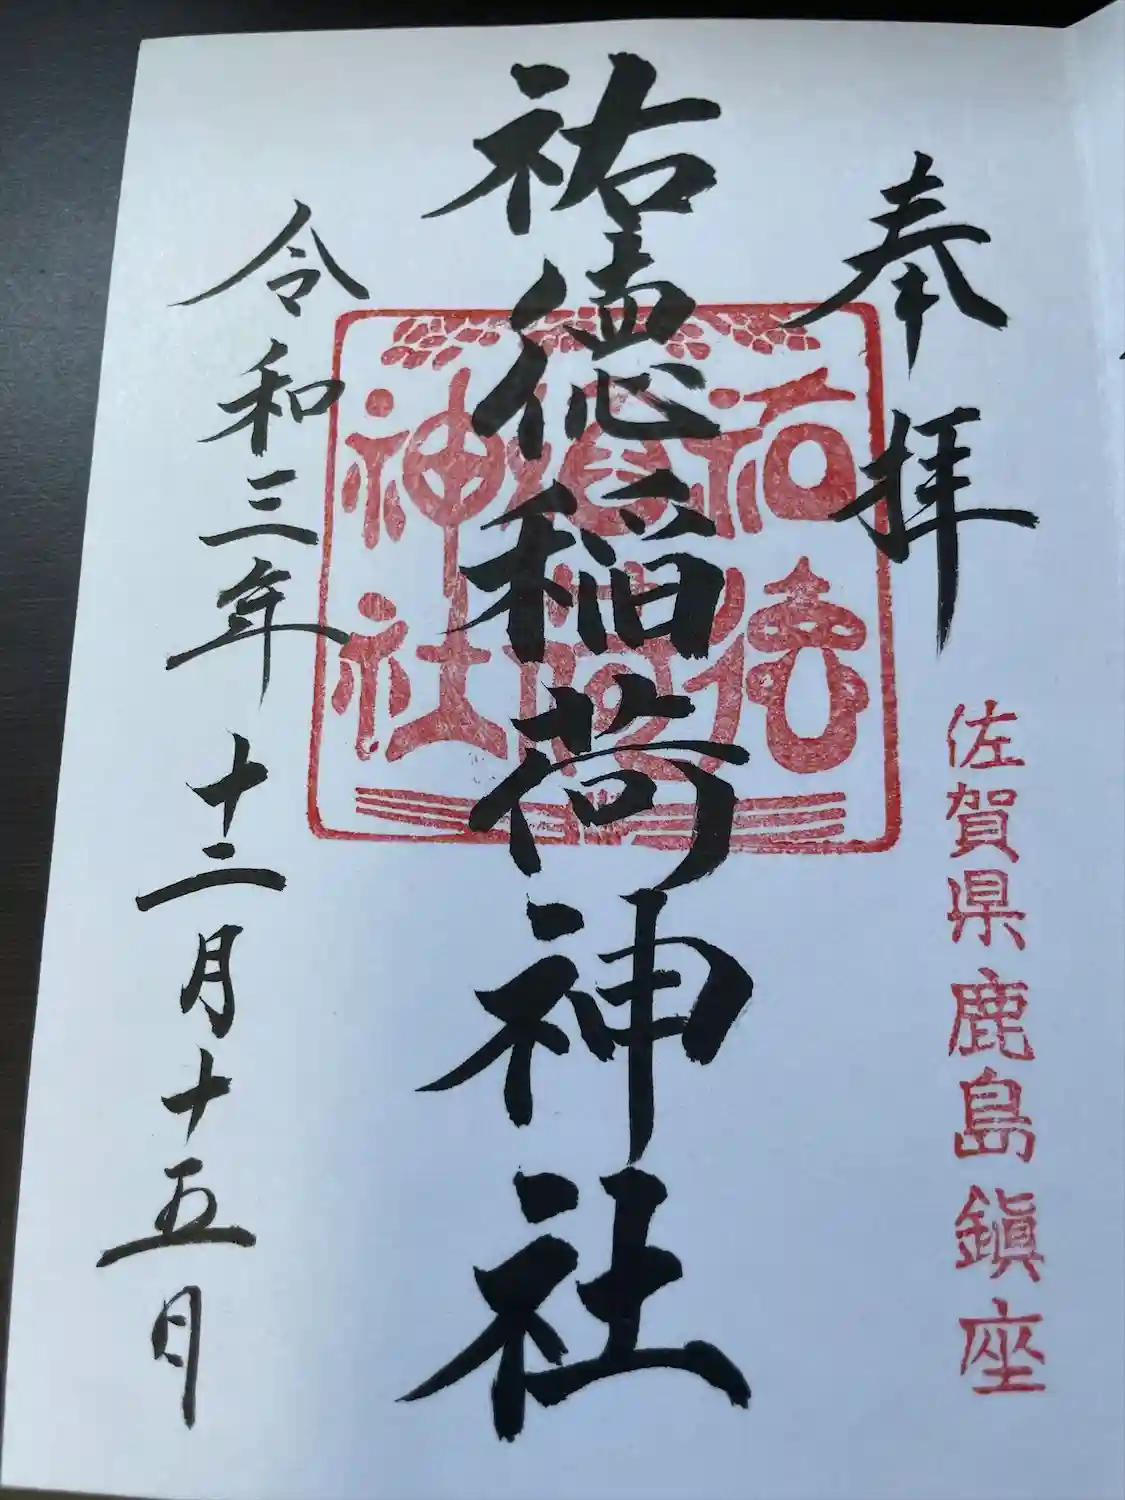 奉拝
佐賀県鹿島鎮座
祐徳稲荷神社
祐徳稲荷神社
令和三年十二月十五日